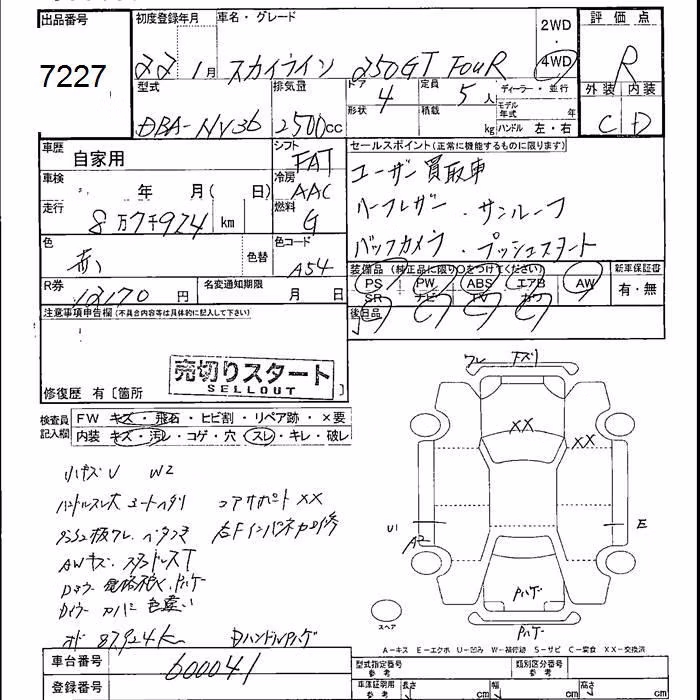 出品番号 初度登録年月 車名・グレード 2WD・4WD 評価点
7227 22 1月 スカイライン 250GT FouR R
型式 排気量 ドア 4 形状 定員 5人 積載 kg ディーラー・並行 モデル年式 年 ハンドル 左・右 外装 内装
DBA-NV36 2500cc C D
車歴 自家用 シフト FAT セールスポイント(正常に機能するものに限ります)
車検 年 月( 日) 冷房 AAC ユーザー買取車
走行 8万7千924 km 燃料 G ハーフレザー・サンルーフ
色 赤 色替 色コード A54 バックカメラ・プッシュスタート
装備品(純正品に限り○をつけてください) 新車保証書
R券 12170円 名変通知期限 月 日 PS PW ABS エアB AW 有・無
SR ナビ TV カワ
注意事項申告欄(不具合内容等は具体的に記入して下さい) 後日品
売切りスタート
SELLOUT
修復歴 有[箇所 ]
ワレ 下ズリ
検査員記入欄 FW キズ・飛石・ヒビ割・リペア跡・×要
内装 キズ・汚レ・コゲ・穴・スレ・キレ・破レ
XX XX
小キズU W2
ハンドルスレ大 シートヘタリ コアサポートXX
右Fインパネ力修
U1 A2 E
AWキズ・スタッドレスT
Pハゲ
色違い
スペア Pハゲ
オド 87924km Dハンドルハゲ
A−キス E−エクボ U−凹み W−補修跡 S−サビ C−腐食 XX−交換済
車台番号 600041 型式指定番号 類別区分番号
登録番号 車庫証明用 長さ cm 幅 cm 高さ cm